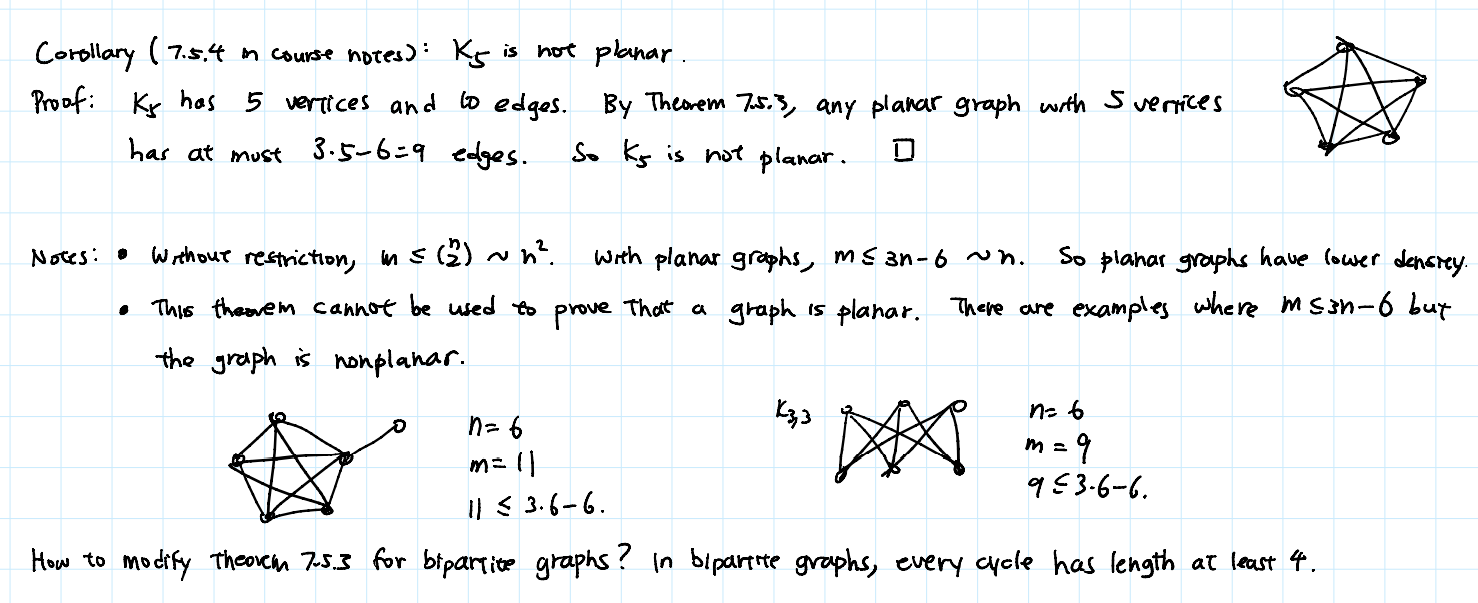 Corollary (7.5.4 in course notes): K₅ is not planar.
Proof: K₅ has 5 vertices and 10 edges. By Theorem 7.5.3, any planar graph with 5 vertices
has at most 3·5-6=9 edges. So K₅ is not planar. □
Notes: • Without restriction, m ≤ (n 2) ~ n². With planar graphs, m ≤ 3n-6 ~ n. So planar graphs have lower density.
• This theorem cannot be used to prove that a graph is planar. There are examples where m ≤ 3n-6 but
the graph is nonplanar.
n=6
m=11
11 ≤ 3·6-6.
K₃,₃
n=6
m=9
9 ≤ 3·6-6.
How to modify Theorem 7.5.3 for bipartite graphs? In bipartite graphs, every cycle has length at least 4.